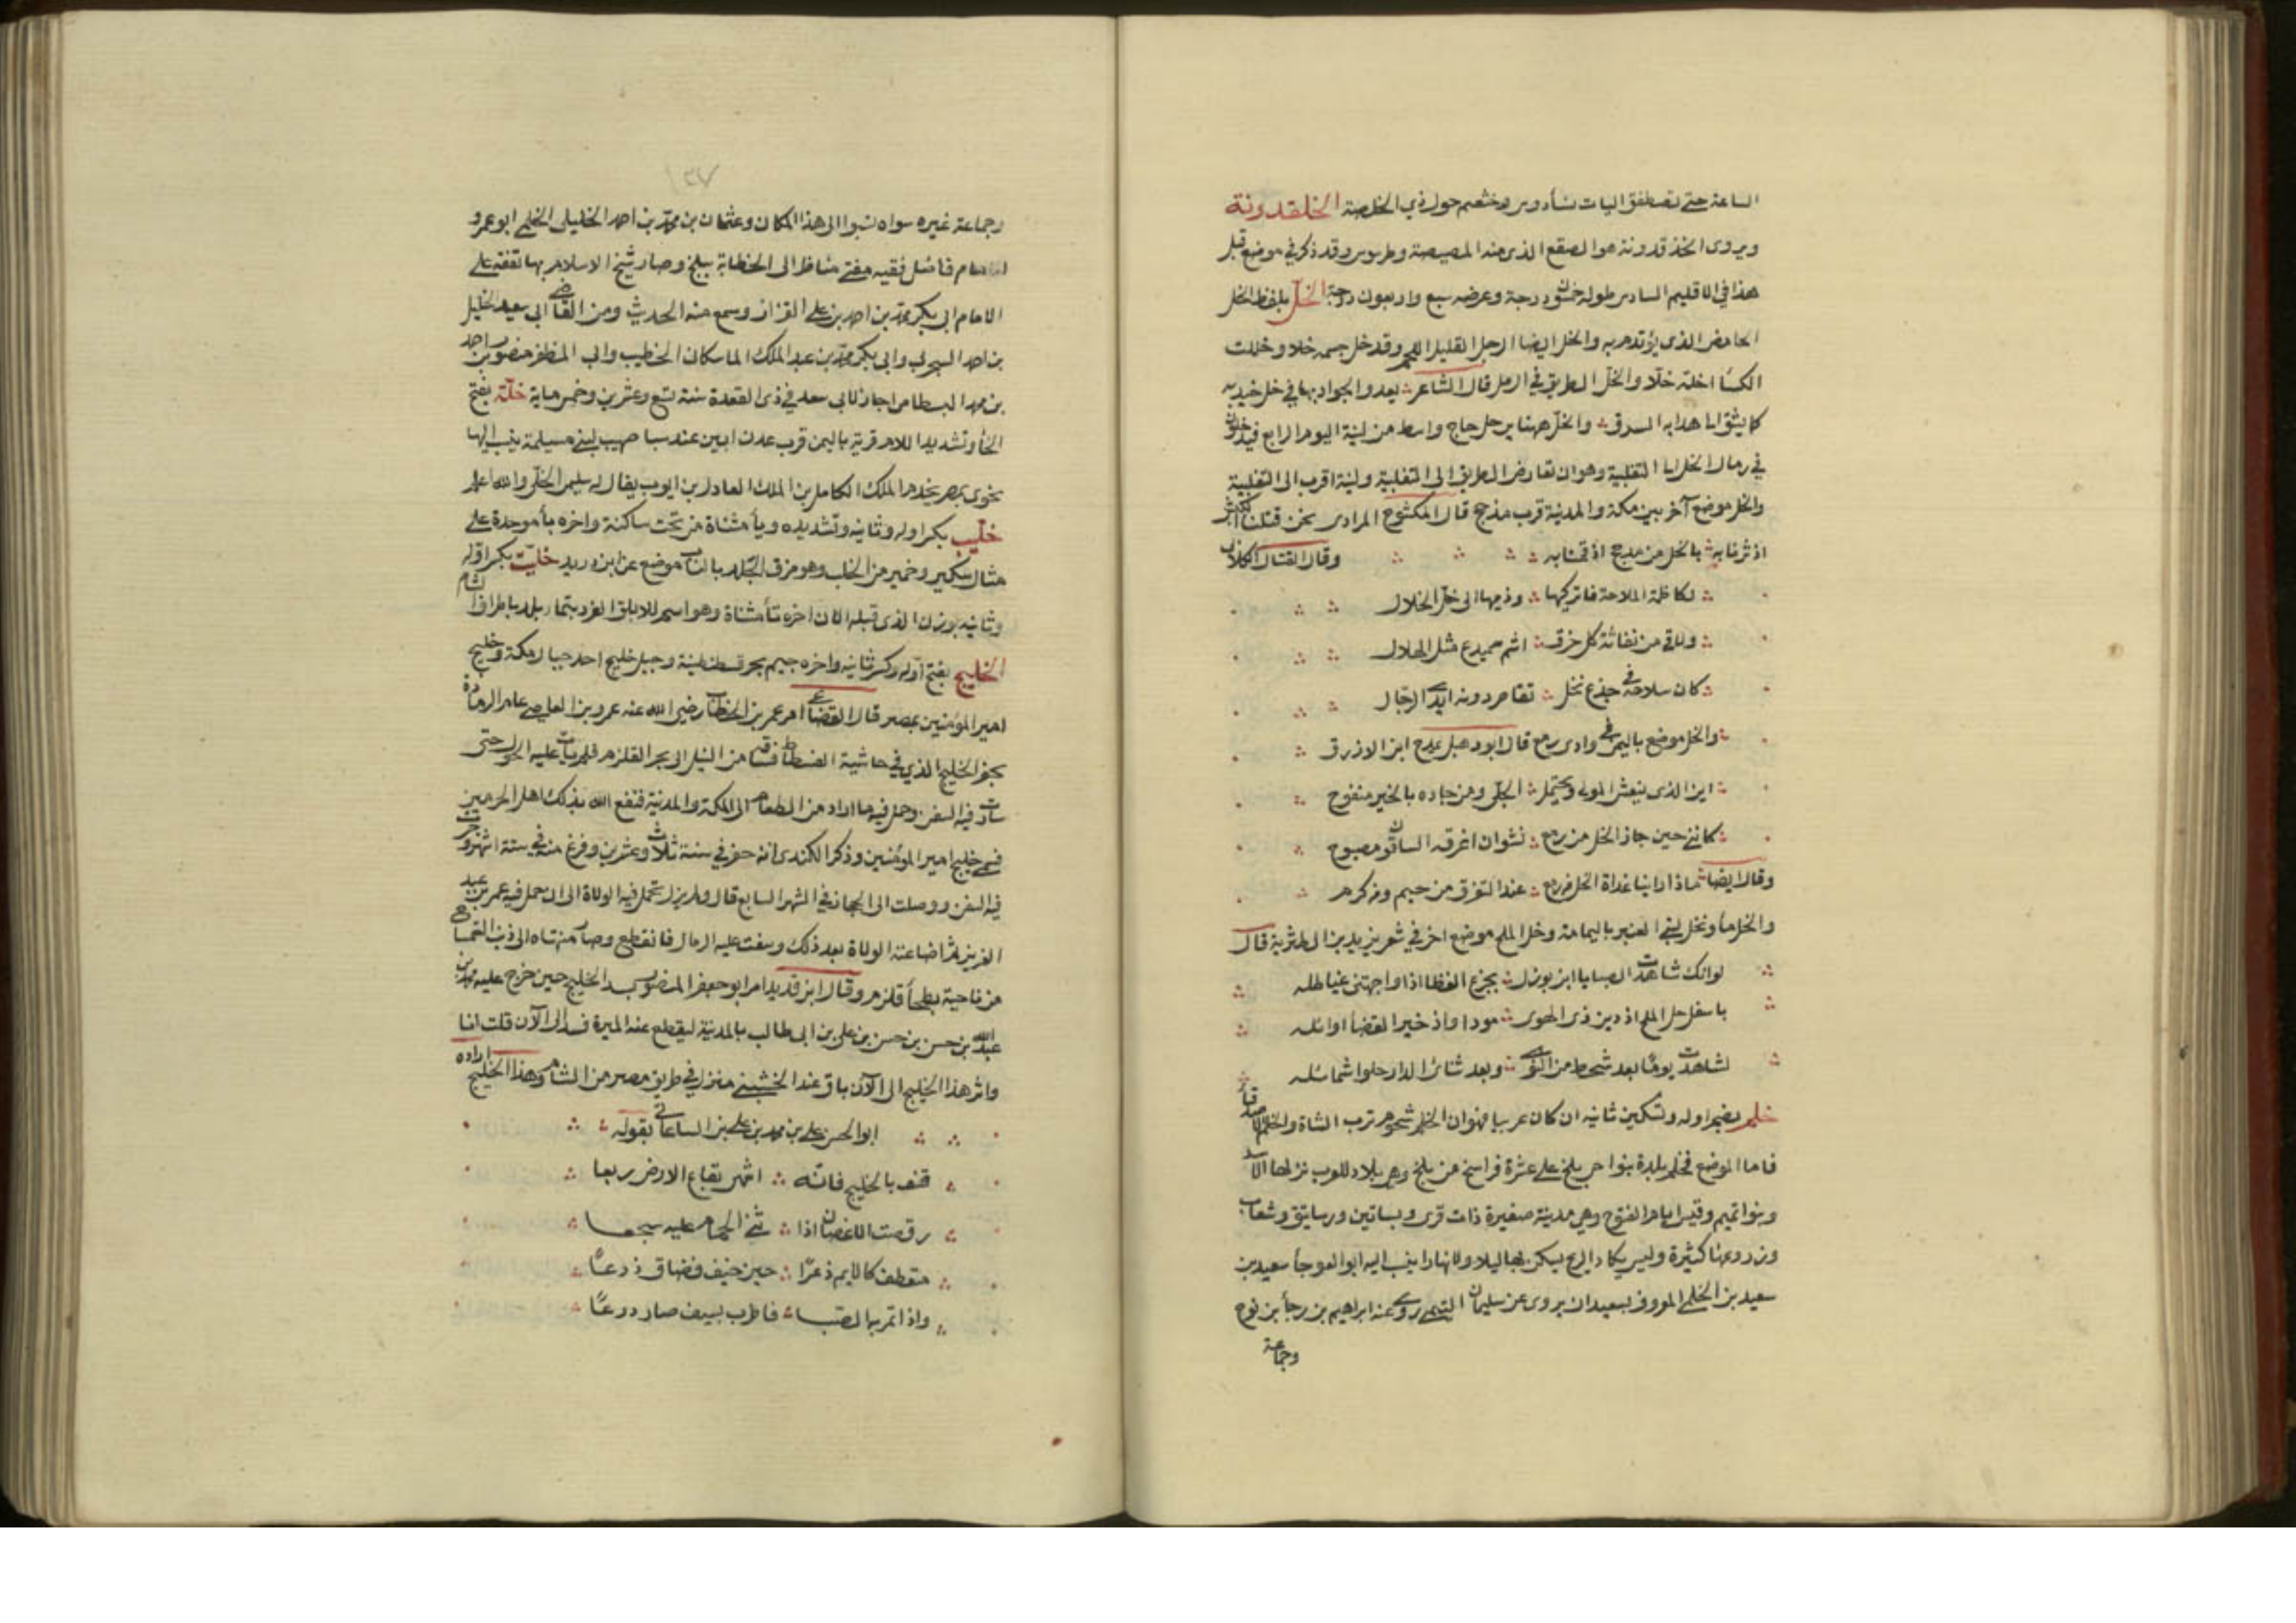 الساعة حتى تصطفق اليات نسأ دوس وخثعم حول ذي الخلصة الخلقدونة
ويروى الخذقدونة هو الصقع الذي منه المصيصة وطرسوس وقد ذكر في موضع قبل
هذا في الاقليم السادس طوله خمسون درجة وعرضه سبع واربعون درجة الخلّ بلفظ الخل
الحامض الذي يؤتدم به والخل ايضا الرجل القليل اللحم وقد خل جسمه خلا وخللت
الكسا اخله خلّا والخلّ الطريق في الرمل قال الشاعر يعدو الجواد بها في خل خيدبه
كما يشق الى هدابه السرق والخل ههنا يرحل حاج واسط من لينة اليوم الرابع فيدخلون
في رمال الخل الى الثعلبية وهو ان تعارض الطريق الى الثعلبية ولينة اقرب الى الثعلبية
والخل موضع آخر بين مكة والمدينة قرب مذحج قال المكشوح المرادي نحن قتلنا الكبش
اذ ثرنا به بالخل من مذحج اذ قمنا به وقال القتال الكلابي
لكاظمة الملاحة فاتركيها وذميها الى خل الخلال
ولاقي من نفاثة كل خرق اشم سميدع مثل الهلال
كان سلاحه في جذع نخل تقاصر دونه ايدي الرجال
والخل موضع باليمن في وادي رمع قال ابو دهبل يمدح ابن الازرق
اين الذي ينعش المولى ويحتمل الجلّى ومن جاده بالخير منفوح
كانني حين جاز الخل من رمع نشوان اغرقه الساقون مصبوح
وقال ايضا ماذا رابنا غداة الخل من رمع عند التفرق من خيم ومن كرم
والخل مأ ونخل لبني العنبر باليمامة وخل الملح موضع اخر في شعر يزيد بن الطثرية قال
لو انك شاهدت الصبا يا ابن بوزل بجزع الغضا اذ واجهتني غياطله
باسفل خل الملح اذ دين ذي الهوى مودا واذ خير القضأ اوائله
لشاهدت يومًا بعد شحط من النوى وبعد ثنائ الدار حلوا شمائله
خلم بضم اوله وتسكين ثانيه ان كان عربيا فهو ان الخلم شحوم ثرب الشاة والخلم الاصدقاء
فاما الموضع فخلم بلدة بنواحي بلخ على عشرة فراسخ من بلخ وهي بلاد للعرب نزلها الاسد
وبنو تميم وقيس ايام الفتوح وهي مدينة صغيرة ذات قرى وبساتين ورساتيق وشعاب
وزروعها كثيرة وليس يكاد الريح يسكن بها ليلا ولا نهارا ينسب اليه ابو العوجأ سعيد بن
سعيد بن الخلمي المعروف بسعيدان يروي عن سليمان التيمي روى عنه ابراهيم بن رجأ بن نوح
وجماعة
١٢٧
وجماعة غيره سواه نسبوا الى هذا المكان وعثمان بن محمد بن احمد الخليلي الخلمي ابو عمرو
الامام فاضل فقيه مفتي مناظر الى الخطابة ببلخ وصار شيخ الاسلام بها تفقه على
الامام ابي بكر محمد بن احمد بن علي القزاز وسمع منه الحديث ومن القاضي ابي سعيد الخليل
بن احمد السجزي وابي بكر محمد بن عبد الملك الماسكان الخطيب وابي المظفر منصور بن احمد
بن محمد البسطامي اجاز لابي سعد في ذي القعدة سنة تسع وعشرين وخمسماية خلّة بفتح
الخأ وتشديد اللام قرية باليمن قرب عدن ابين عند سبا صهيب لبني مسيلمة ينسب اليها
نحوي بمصر يخدم الملك الكامل بن الملك العادل بن ايوب يقال له سليم الخلّي والله اعلم
خلّيب بكسر اوله وثانيه وتشديده ويأ مثناة من تحت ساكنة واخره بأ موحدة على
مثال سكير وخمير من الخلب وهو مزق الجلد بالناب موضع عن ابن دريد خليت بكسر اوله
وثانيه بوزن الذي قبله الا ان اخره تأ مثناة وهو اسم للابلق الفرد بتما بلد باطراف الشام
الخليج بفتح اوله وكسر ثانيه واخره جيم بحر قسطنطنية وجبل خليج احد جبال مكة وخليج
امير المؤمنين بمصر قال القضاعي امر عمر بن الخطاب رضي الله عنه عمرو بن العاصي عام الرمادة
بحفر الخليج الذي في حاشية الفسطاط فساقه من النيل الى بحر القلزم فلم يأت عليه الحول حتى
سارت فيه السفن وحمل فيه ما اراد من الطعام الى المكة والمدينة فنفع الله بذلك اهل الحرمين
فسمي خليج امير المؤمنين وذكر الكندي انه حفر في سنة ثلاث وعشرين وفرغ منه في ستة اشهر وجرت
فيه السفن ووصلت الى الحجاز في الشهر السابع قال ولم يزل تحمل فيه الولاة الى ان حمل فيه عمر بن عبد
العزيز ثم اضاعته الولاة بعد ذلك وسفت عليه الرمال فانقطع وصار منتهاه الى ذنب التمساح
من ناحية بطحأ قلزم وقال ابن قديد امر ابو جعفر المنصور بسد الخليج حين خرج عليه محمد بن
عبد الله بن حسن بن حسن بن علي بن ابي طالب بالمدينة ليقطع عنه الميرة فسد الى الآن قلت انا
واثر هذا الخليج الى الآن باق عند الخشبي منزل في طريق مصر من الشام وهذا الخليج اراده
ابو الحسن علي بن محمد بن علي بن الساعاتي بقوله
قف بالخليج فانه اشهر بقاع الارض ربعا
رقصت الاغصان اذا ثنى الحمام عليه سجعا
متعطف كالايم ذعرًا حين خيف فضاق ذرعًا
واذا تمر بها الصبا فاطرب بسيف صار درعًا